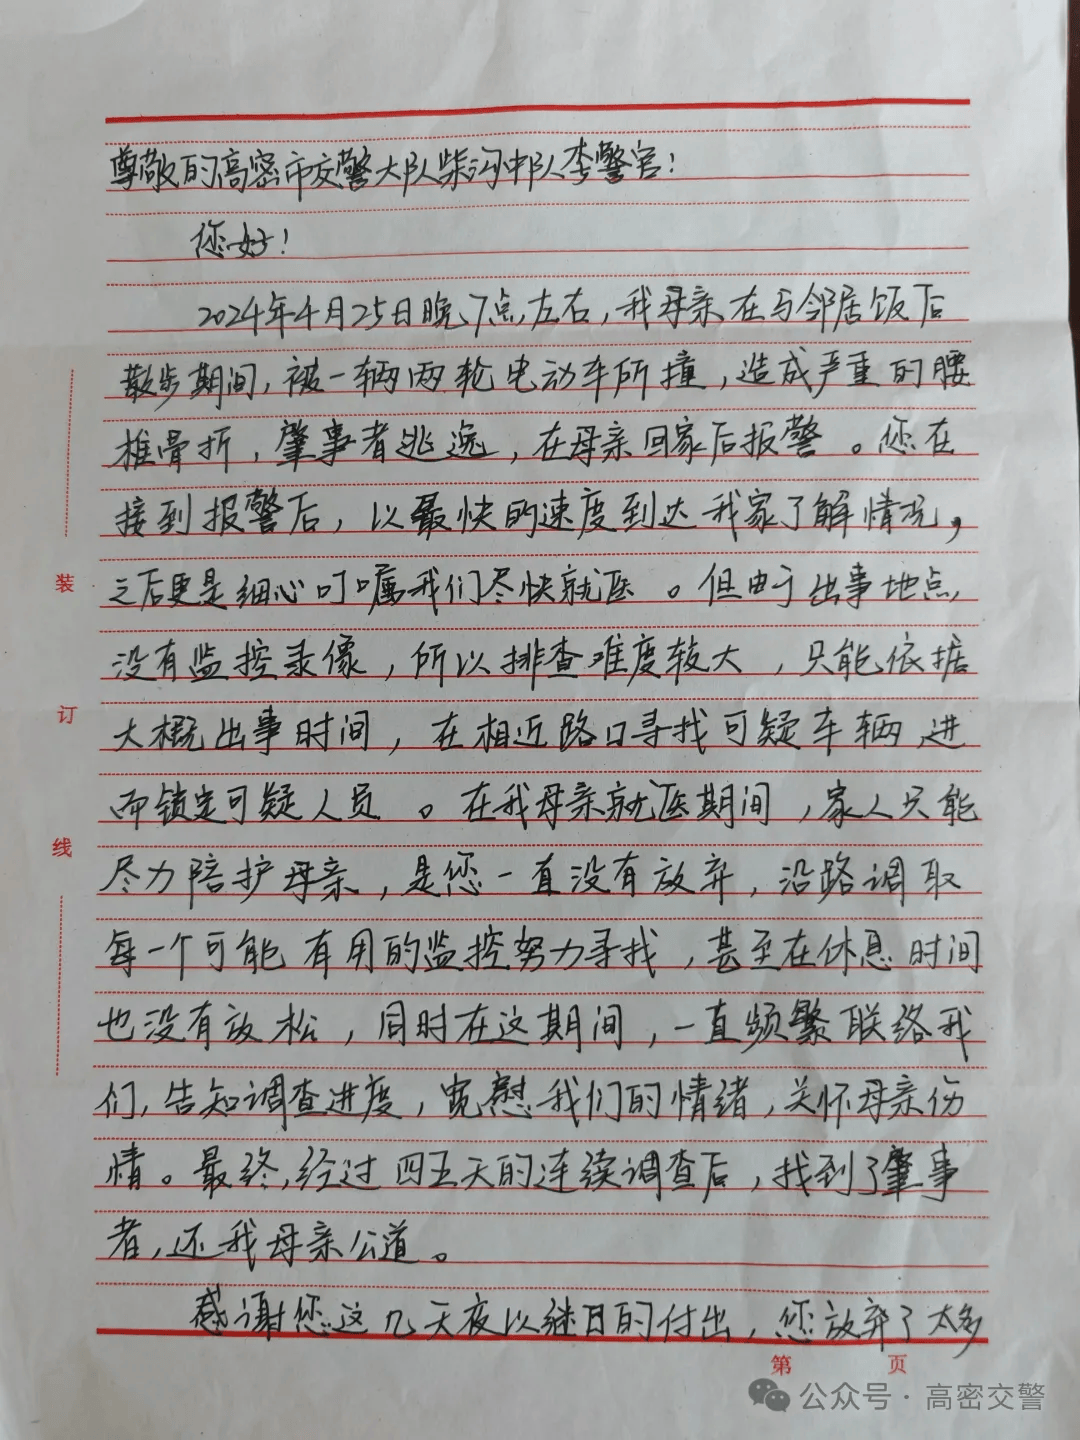 尊敬的高密市交警大队柴沟中队李警官！
您好！
2024年4月25日晚7点左右，我母亲在与邻居饭后
散步期间，被一辆两轮电动车所撞，造成严重的腰
椎骨折，肇事者逃逸，在母亲回家后报警。您在
接到报警后，以最快的速度到达我家了解情况，
之后更是细心叮嘱我们尽快就医。但由于出事地点
没有监控录像，所以排查难度较大，只能依据
大概出事时间，在相近路口寻找可疑车辆，进
而锁定可疑人员。在我母亲就医期间，家人只能
尽力陪护母亲，是您一直没有放弃，沿路调取
每一个可能有用的监控努力寻找，甚至在休息时间
也没有放松，同时在这期间，一直频繁联络我
们，告知调查进度，宽慰我们的情绪，关怀母亲伤
情。最终，经过四五天的连续调查后，找到了肇事
者，还我母亲公道。
感谢您这几天夜以继日的付出，您放弃了太多
装
订
线
第 页
公众号·高密交警